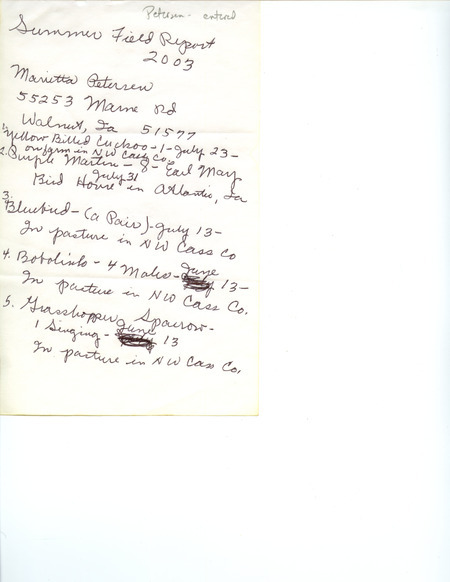 Petersen - entered
Summer Field Report
2003
Marietta Petersen
55253 Marne Rd
Walnut, Ia 51577
1. Yellow Billed Cuckoo - 1 - July 23 -
on farm in NW Cass Co.
2. Purple Martin - 8 - Earl May
July 31
Bird House in Atlantic, Ia
3.
Bluebird - (a Pair) - July 13 -
In pasture in NW Cass Co
4. Bobolinks - 4 Males - June 13 -
In pasture in NW Cass Co.
5. Grasshopper Sparrow -
1 Singing - June 13
In pasture in NW Cass Co.